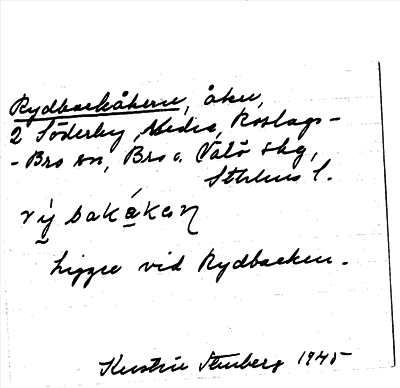 Rydbackåkern, åker,
2 Söderby, Nedre, Roslags-
-Bro sn, Bro o. Vätö skg,
Sthlms l.
rỳbakákạn
Ligger vid Rydbacken.
Kerstin Stenberg 1945